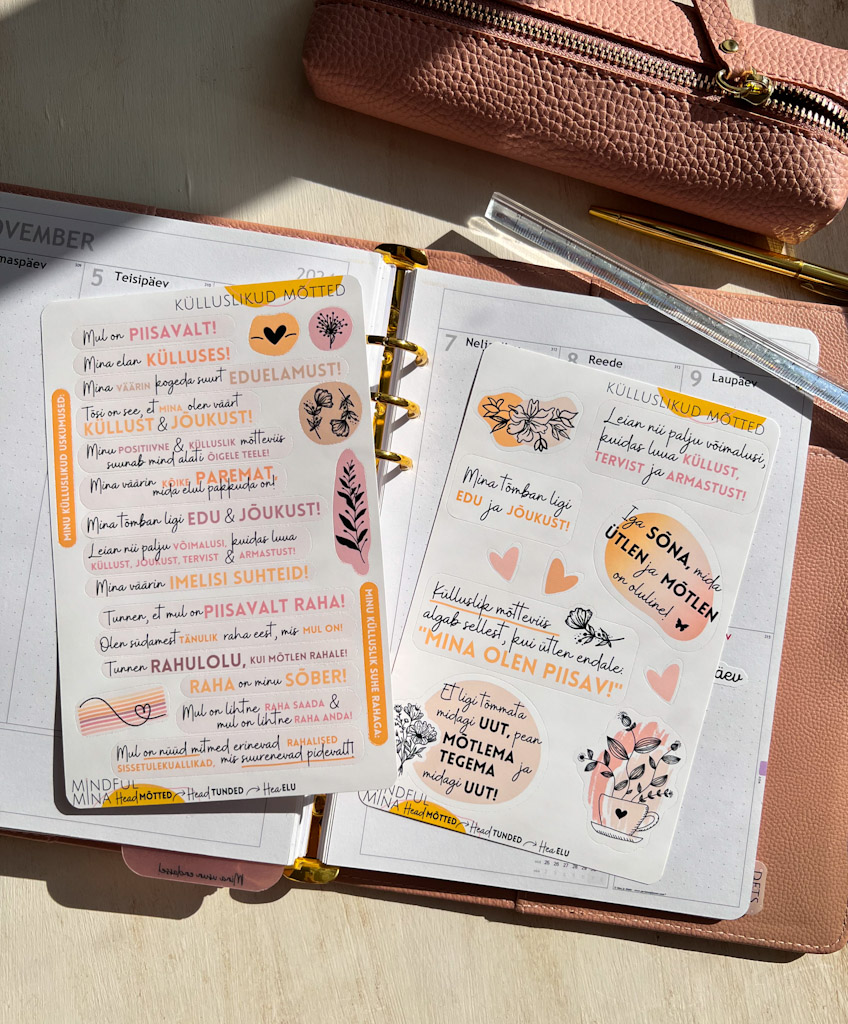 NOVEMBER
5 Teisipäev
KÜLLUSLIKUD MÕTTED
Mul on PIISAVALT!
Mina elan KÜLLUSES!
Mina VÄÄRIN kogeda suurt EDUELAMUST!
Tõsi on see, et MINA olen väärt
KÜLLUST & JÕUKUST!
Minu POSITIIVNE & KÜLLUSLIK mõtteviis
suunab mind alati ÕIGELE TEELE!
Mina väärin KÕIKE PAREMAT,
mida elul pakkuda on!
Mina tõmban ligi EDU & JÕUKUST!
Leian nii palju VÕIMALUSI, kuidas luua
KÜLLUST, JOUKUST, TERVIST & ARMASTUST!
Mina väärin IMELISI SUHTEID!
Tunnen, et mul on PIISAVALT RAHA!
Olen südamest TÄNULIK raha eest, mis MUL ON!
Tunnen RAHULOLU, KUI MÕTLEN RAHALE!
RAHA on minu SÕBER!
Mul on lihtne RAHA SAADA &
mul on lihtne RAHA ANDA!
Mul on nüüd mitmed erinevad RAHALISED
SISSETULEKUALLIKAD, mis suurenevad pidevalt!
MINU KÜLLUSLIKUD USKUMUSED:
MINU KÜLLUSLIK SUHE RAHAGA:
MINDFUL
MINA Head MÕTTED → Head TUNDED → Hea ELU
7
8 Reede
9 Laupäev
KÜLLUSLIKUD MÕTTED
Leian nii palju võimalusi,
kuidas luua KÜLLUST,
TERVIST ja ARMASTUST!
Mina tõmban ligi
EDU ja JÕUKUST!
Iga SÕNA, mida
ÜTLEN ja MÕTLEN
on oluline!
Külluslik mõtteviis
algab sellest, kui ütlen endale:
"MINA OLEN PIISAV!"
Et ligi tõmmata
midagi UUT, pean
MÕTLEMA ja
TEGEMA
midagi UUT!
MINDFUL
MINA Head MÕTTED → Head TUNDED → Hea ELU